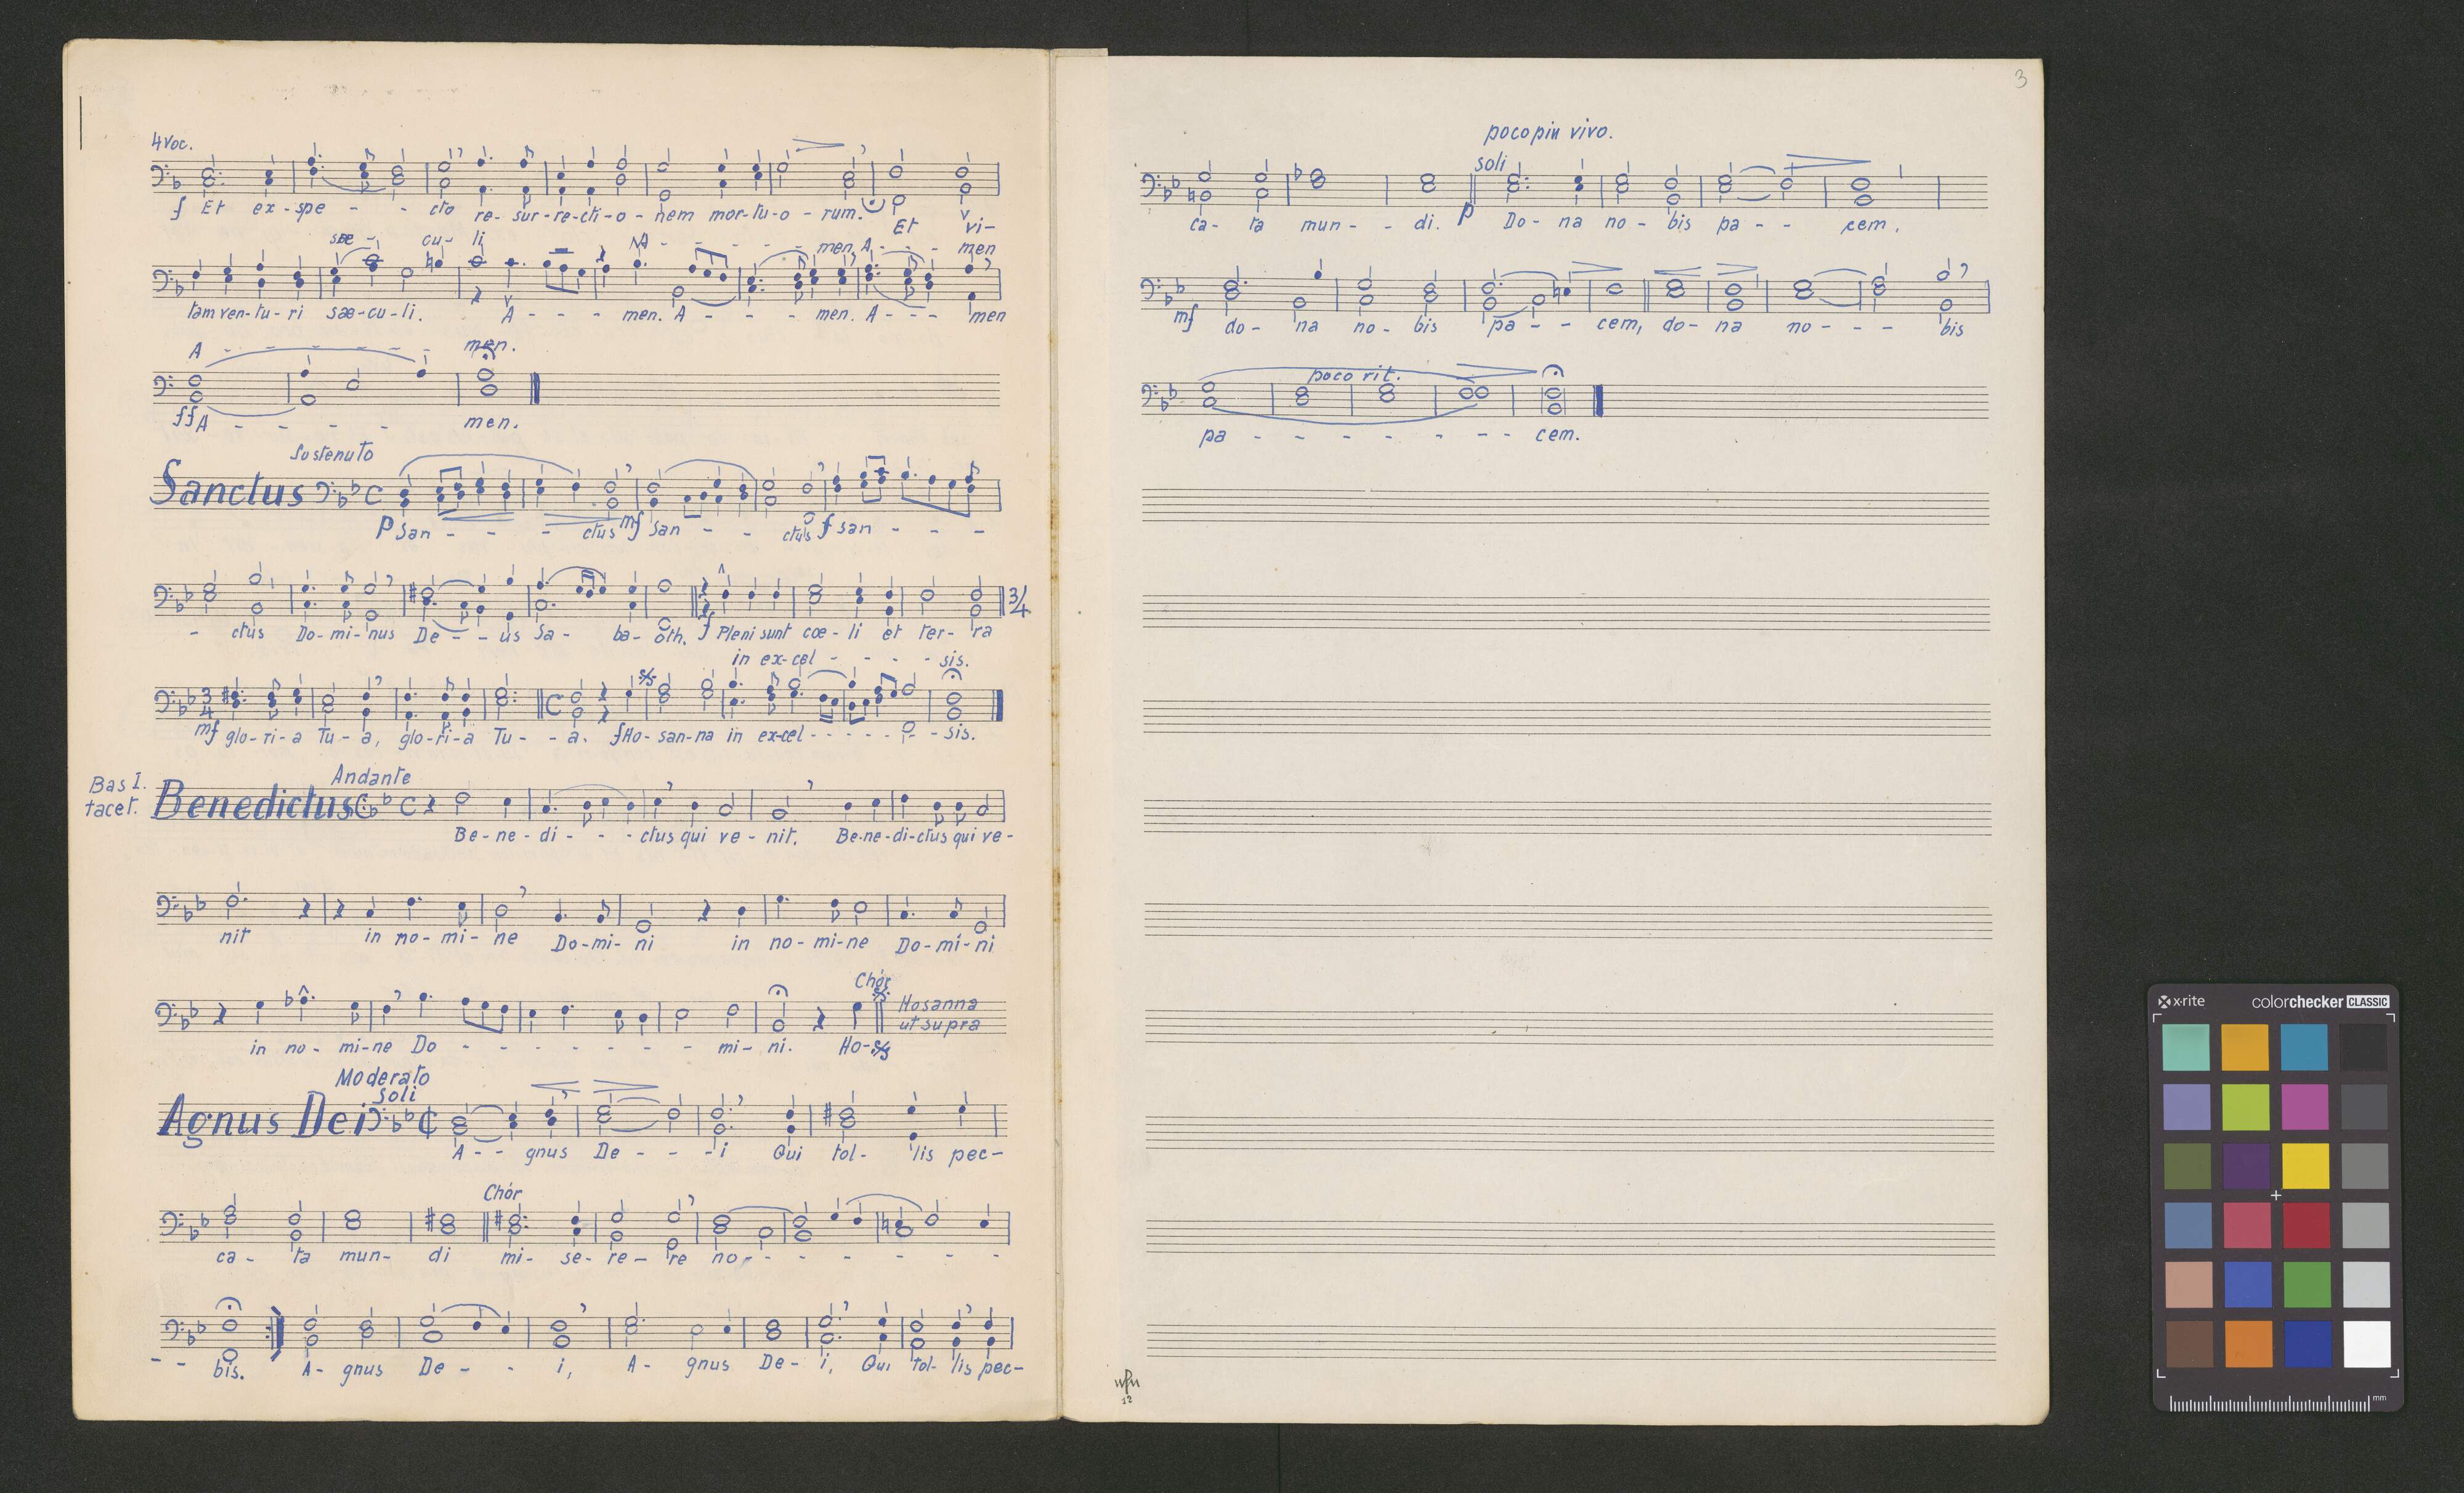 4 voc.
f Et ex-spe - - cto re-sur-re-cti-o-nem mor-tu-o-rum. Et vi-
sae - cu- li A - - - - - men, A - - - men
tam ven-tu-ri sae-cu-li. A - - - men. A - - - men. A - - - men
A - - - - - - men.
ff A - - - - men.
Sostenuto
Sanctus C
p San - - - ctus mf San - - ctus f san - - -
- ctus Do-mi-nus De - - us Sa- ba- oth. f Pleni sunt coe-li et ter-ra 3/4
in ex-cel - - - - sis.
3/4 C
mf glo-ri-a Tu-a, glo-ri-a Tu- -a. f Ho-san-na in ex-cel - - - - - - - sis.
Andante
Bas I. tacet.
Benedictus C
Be-ne-di - - - ctus qui ve-nit. Be-ne-di-ctus qui ve-
nit in no-mi-ne Do-mi-ni in no-mi-ne Do-mi-ni
Chór
Hosanna
ut supra
in no- mi-ne Do - - - - - - - mi- ni. Ho-
Moderato
soli
Agnus Dei
A - - gnus De - - - i Qui tol- lis pec-
Chór
ca- ta mun- di mi- se- re- re no - - - - - -
- - bis. A- gnus De - - i, A- gnus De- i, Qui tol- lis pec-
3
poco pin vivo.
soli
ca- ta mun- - di. p Do- na no- bis pa - - cem.
mf do- na no- bis pa - - cem, do- na no - - - bis
poco rit.
pa - - - - - - - cem.
12
x-rite colorchecker CLASSIC
mm